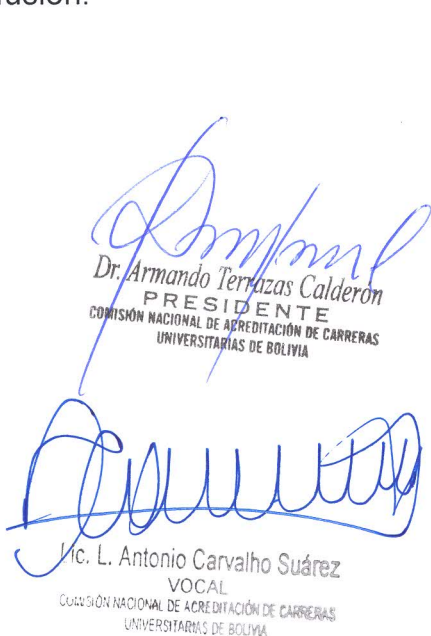 Dr. Armando Terrazas Calderón
PRESIDENTE
COMISIÓN NACIONAL DE ACREDITACIÓN DE CARRERAS
UNIVERSITARIAS DE BOLIVIA
Lic. L. Antonio Carvalho Suárez
VOCAL
COMISIÓN NACIONAL DE ACREDITACIÓN DE CARRERAS
UNIVERSITARIAS DE BOLIVIA